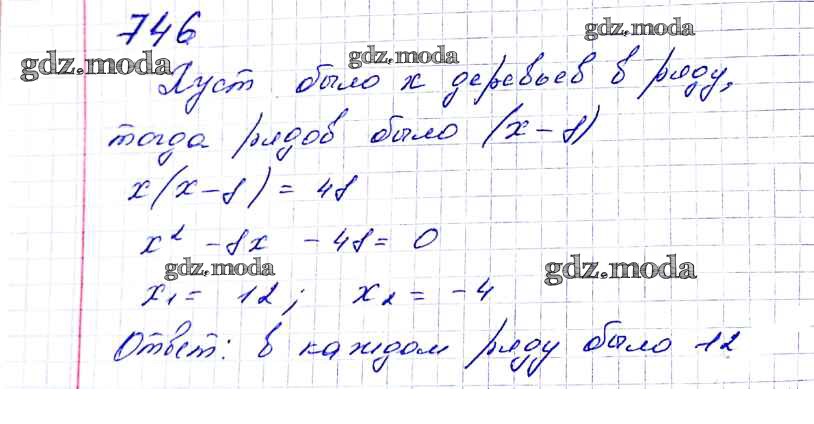 746
gdz.moda
gdz.moda
gdz.moda
Пуст было х деревьев в ряду,
тогда рядов было (х-8)
х(х-8)=48
х² -8х -48=0
gdz.moda
gdz.moda
х₁= 12; х₂ = -4
Ответ: в каждом ряду было 12